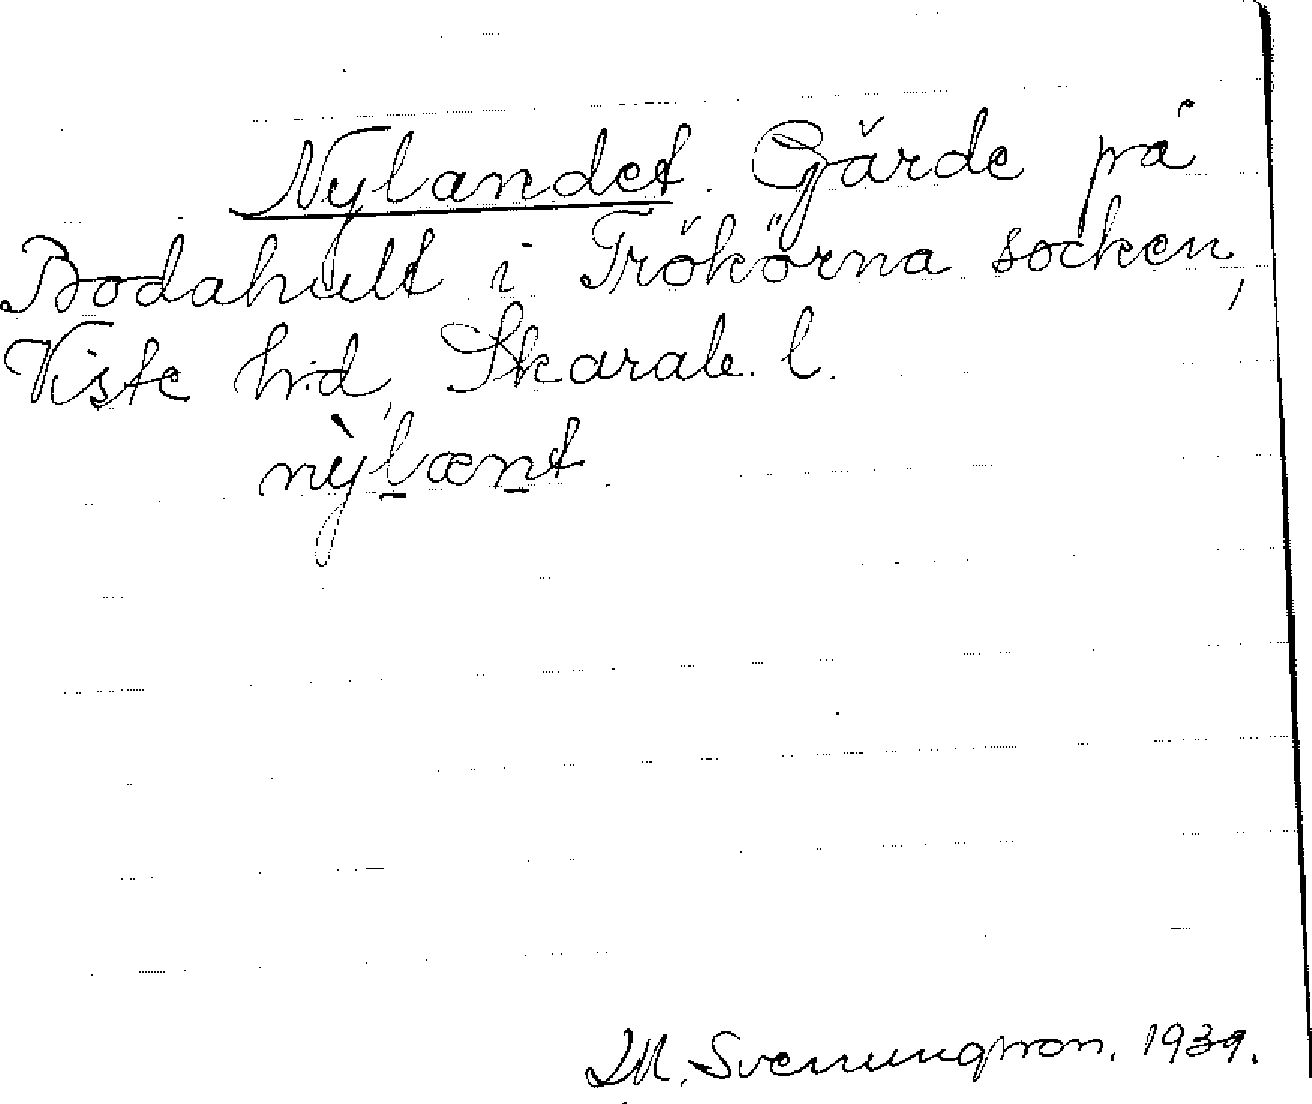 Nylandet. Gärde på
Bodahult i Trökörna socken,
Viste hd, Skarab. l.
nỳlænt.
Svenungsson. 1939.